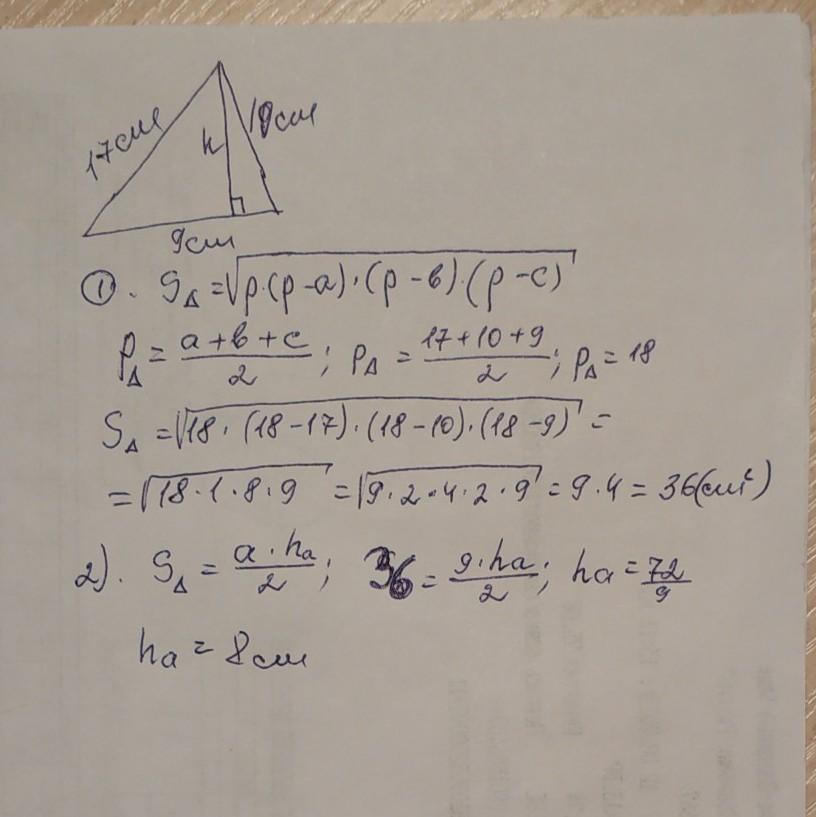 17см
h
10см
9см
①. S△ = √p·(p-a)·(p-в)·(p-c)
P△ = a+в+c/2; p△ = 17+10+9/2; p△ = 18
S△ = √18·(18-17)·(18-10)·(18-9) =
= √18·1·8·9 = √9·2·4·2·9 = 9·4 = 36(см²)
2). S△ = a·hа/2; 36 = 9·hа/2; hа = 72/9
hа = 8см